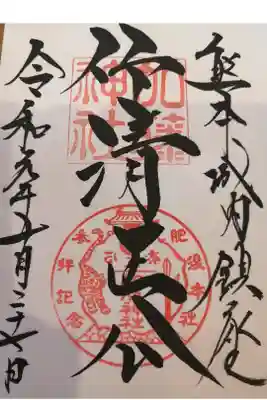 熊本城内鎮座
仰清正公
令和元年五月二十七日
加藤
神社
肥後本社
参拝記念